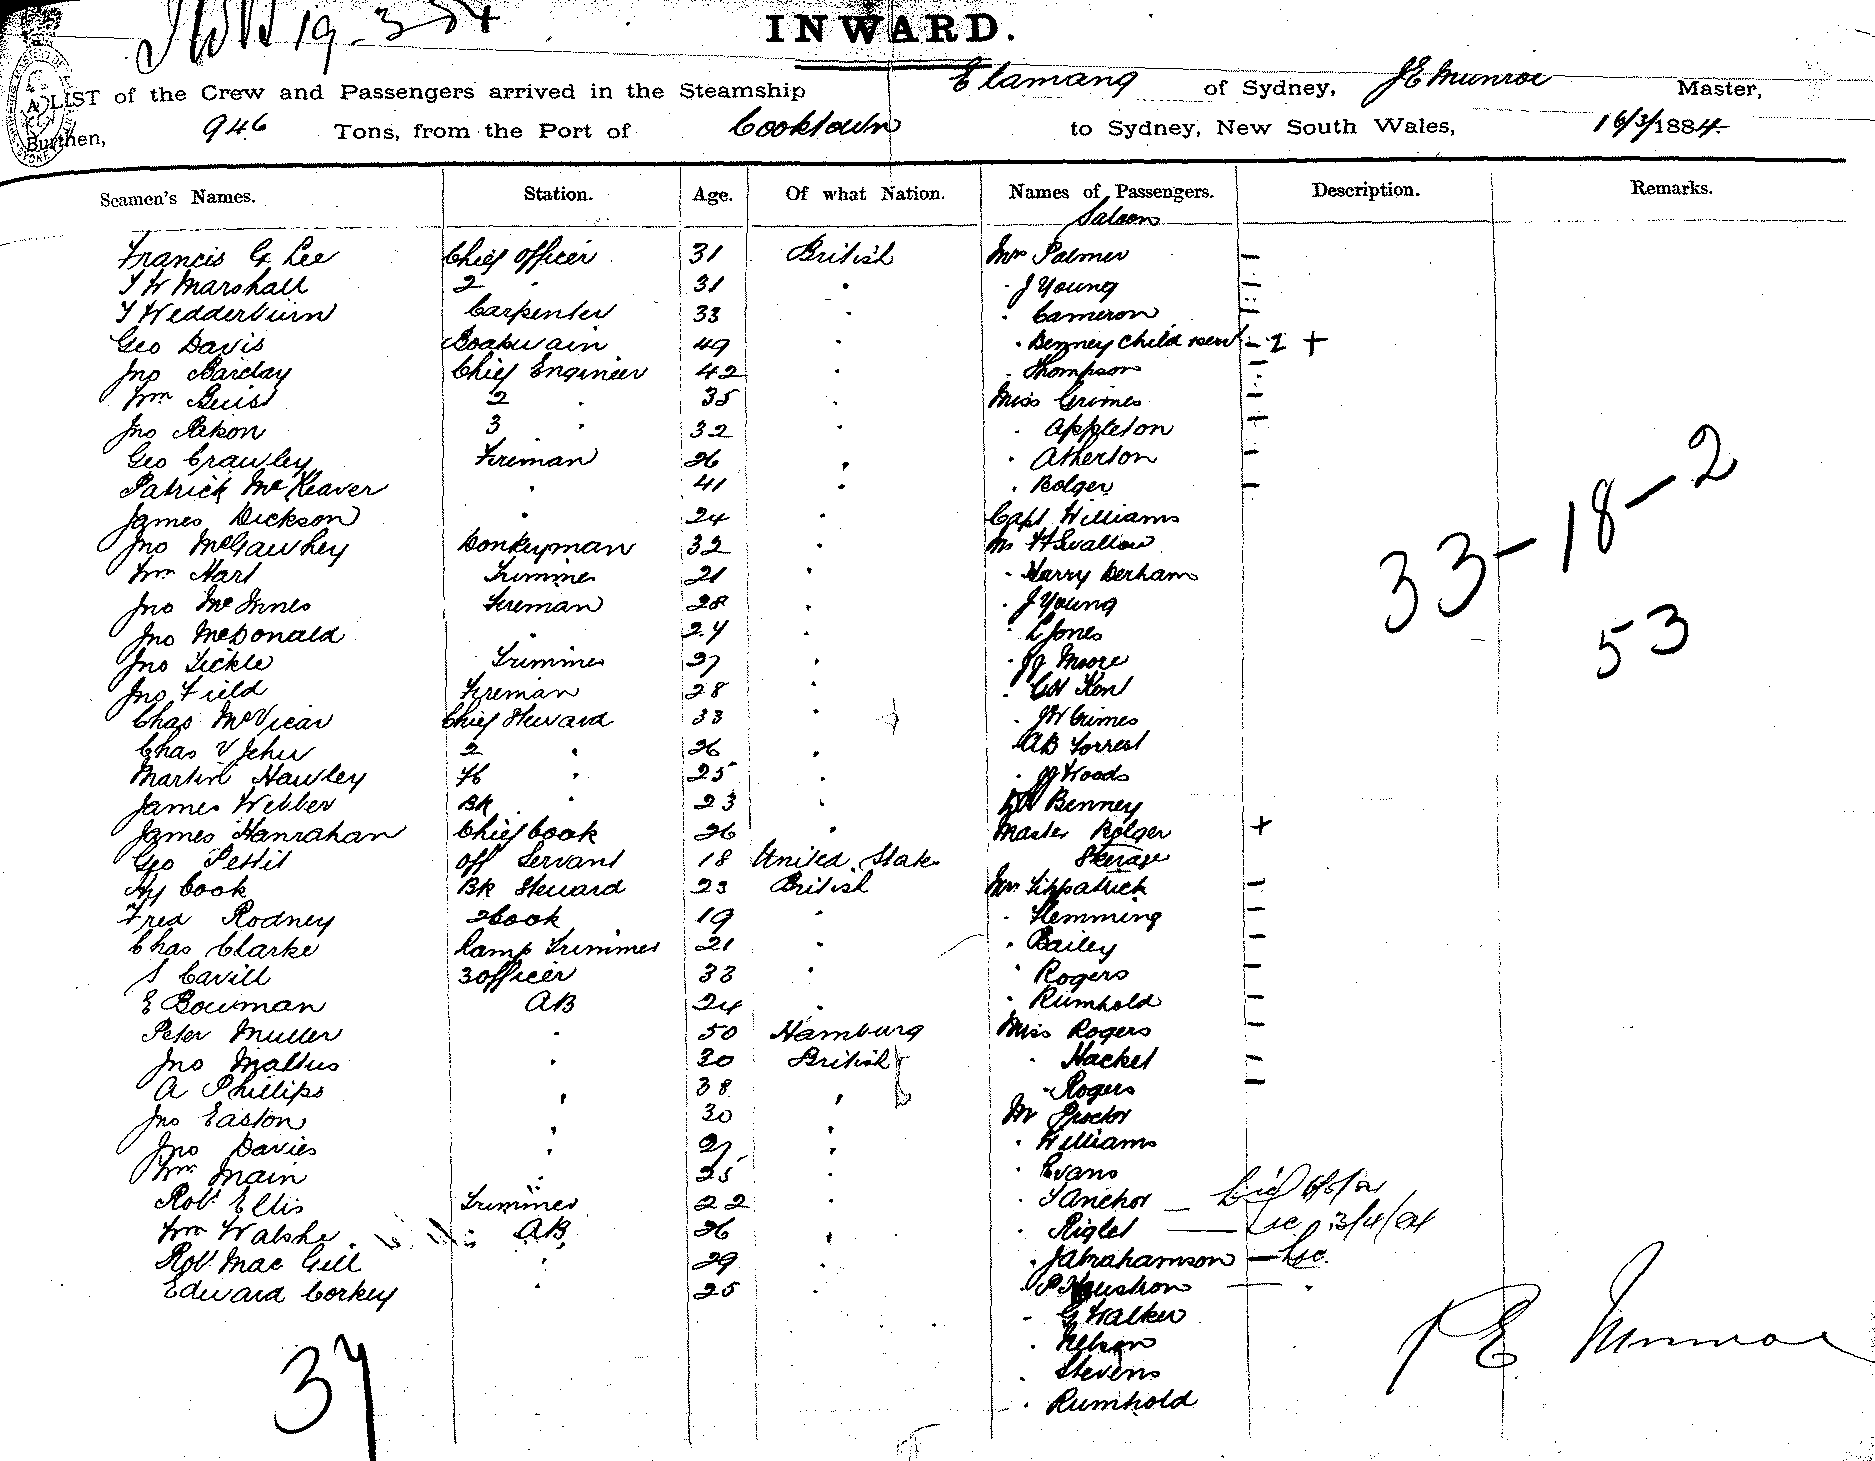 19-3-84
INWARD.
A LIST of the Crew and Passengers arrived in the Steamship Elamang of Sydney, J E Munroe Master,
Burthen, 946 Tons, from the Port of Cooktown to Sydney, New South Wales, 16/3/1884
Seamen's Names. Station. Age. Of what Nation. Names of Passengers. Description. Remarks.
Saloon
Francis G Lee Chief Officer 31 British Mrs Palmer —
T W Marshall 2 " 31 " " J Young —
T Wedderburn Carpenter 33 " " Cameron —
Geo Davis Boatswain 49 " " Benney Child — 1 +
Jno Barclay Chief Engineer 42 " " Thompson —
Wm Buist 2 " 35 " Miss Grimes —
Jno 3 " 32 " " Appleton —
Geo Crawley Fireman 26 " " Atherton —
Patrick McKeaver " 41 " " Bolger —
James Dickson " 24 " Capt Williams
Jno McGawhey Donkeyman 32 " Mr H Swallow
Wm Hart Trimmer 21 " " Harry Derham
Jno McInnes Fireman 28 " " J Young
Jno McDonald " 24 " " L Jones
Jno Tickle Trimmer 27 " " Moore
Jno Field Fireman 28 " " Kent
Chas McVicar Chief Steward 33 " " Grimes
Chas V Jehu 2 " 26 " " A B Forrest
Martin Hawley " 25 " " Woods
James Webber BK " 23 " Benney
James Hanrahan Chief Cook 26 " Master Bolger +
Geo Pettit Off Servant 18 United State Steerage
Hy Cook BK Steward 23 British Mrs Fitzpatrick —
Fred Rodney 2 Cook 19 " " Flemming —
Chas Clarke Lamp Trimmer 21 " " Bailey —
S Cavill 3 Officer 33 " " Rogers —
E Bowman AB 24 " " Rumhold —
Peter Muller " 50 Hamburg Miss Rogers —
Jno Maltus " 30 British " Hacket —
A Phillips " 38 " " Rogers —
Jno Easton " 30 " Mr Proctor
Jno Davies " 27 " " Williams
Wm Main " 25 " " Evans
Robt Ellis Trimmer 22 " " T Anchor —
Wm Walshe AB 26 " " Riglet — Lic 3/4/84
Robt Mac Gill " 29 " " J Abrahamson — Lic.
Edward Corkey " 25 " " P Houston — "
" G Walker
" Nelson
" Stevens
" Rumhold
33-18-2
53
37
J E Munroe